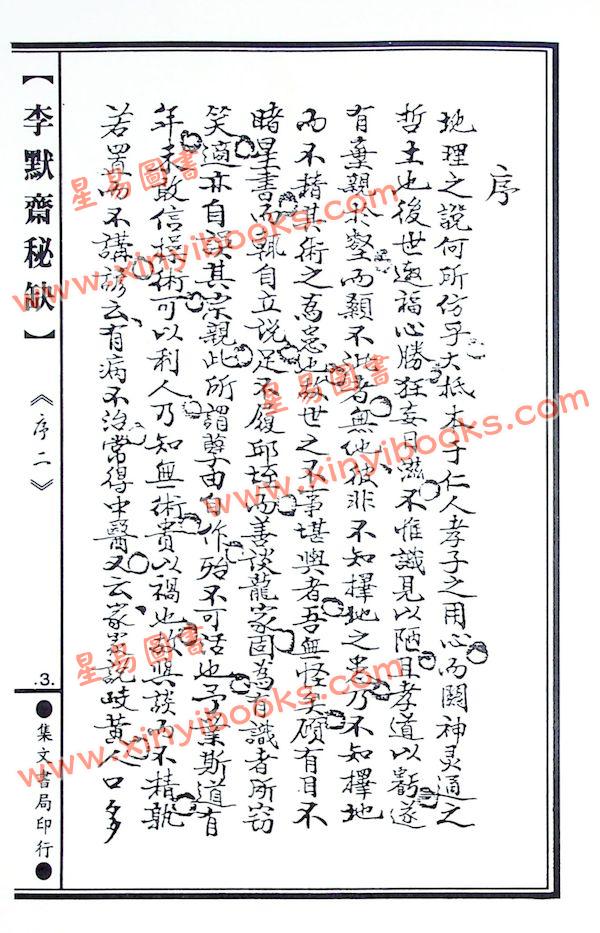 序
地理之說何所仿乎大抵本于仁人孝子之用心而闢神灵通之
哲士也後世邀福心勝狂妄日滋不惟識見以陋且孝道以虧遂
有棄親於壑而顯不泚者無他彼非不知擇地之患乃不知擇地
而不精其術之為患也斯世之不事堪輿者吾無怪矣碩有目不
睹星書而執自立說足不履邱垤而善談龍家固為有識者所窃
笑適亦自誤其宗親此所謂孽由自作殆不可活也予業斯道有
年未敢信操術可以利人乃知無術貴以禍也欲與談而不精孰
若置而不講諺云有病不治常得中醫又云家岩說岐黃人口多
【李默齋秘缺】
《序二》
.3.
●集文書局印行●
星易圖書
www.xinyibooks.com
星易圖書
www.xinyibooks.com
星易圖書
www.xinyibooks.com